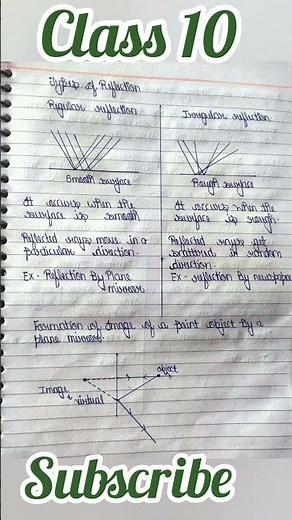 Class 10
Types of Reflection
Regular reflection
Smooth surface
It occurs when the
surface is smooth
Reflected rays move in a
particular direction.
Ex - Reflection By Plane
mirror
Irregular reflection
Rough surface
It occurs when the
surface is rough.
Reflected rays get
scattered in random
direction.
Ex - reflection by newspaper
Formation of Image of a point object by a
plane mirror.
object
Image
virtual
Subscribe